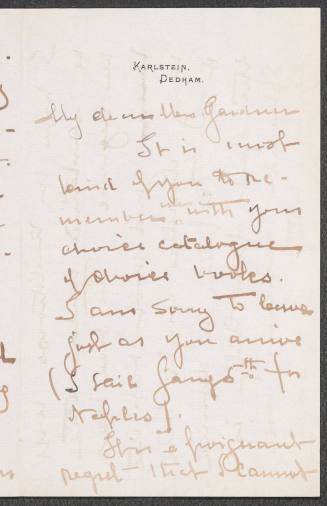 KARLSTEIN,
DEDHAM.
My dear Mrs Gardner
It is most
kind of you to re-
member me with your
choice catalogue
of choice books.
I am sorry to leave
just as you arrive
(I sail Jany 5th for
Naples).
It is a poignant
regret that I cannot